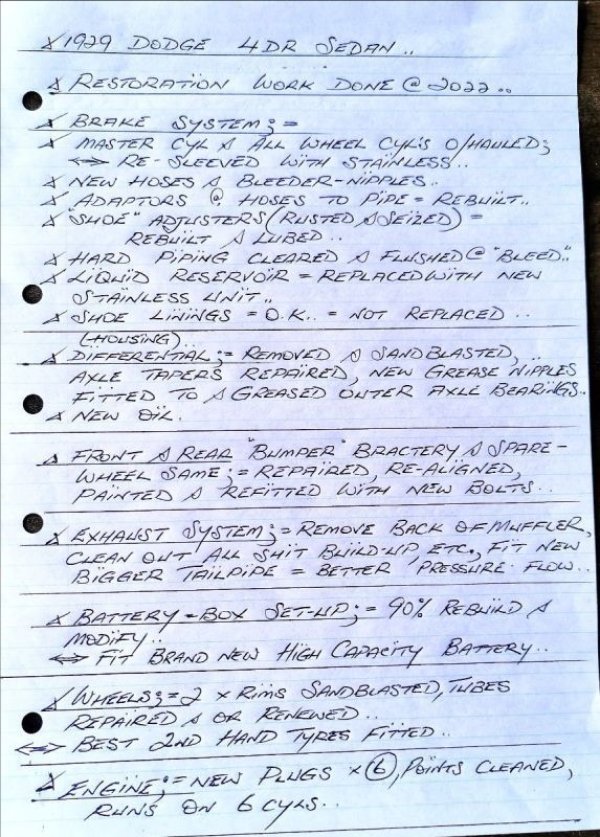 x 1929 DODGE 4DR SEDAN..
x RESTORATION WORK DONE @ 2022..
x BRAKE SYSTEM; =
x MASTER CYL & ALL WHEEL CYL'S O/HAULED;
<=> RE-SLEEVED WITH STAINLESS..
x NEW HOSES & BLEEDER-NIPPLES..
x ADAPTORS @ HOSES TO PIPE = REBUILT..
x "SHOE" ADJUSTERS (RUSTED & SEIZED) =
REBUILT & LUBED..
x HARD PIPING CLEARED & FLUSHED @ "BLEED"..
x LIQUID RESERVOIR = REPLACED WITH NEW
STAINLESS UNIT..
x SHOE LININGS = O.K.. = NOT REPLACED..
(HOUSING)..
x DIFFERENTIAL; = REMOVED & SANDBLASTED,..
AXLE TAPERS REPAIRED, NEW GREASE NIPPLES
FITTED TO & GREASED OUTER AXLE BEARINGS..
x NEW OIL.
x FRONT & REAR "BUMPER" BRACTERY & SPARE-
WHEEL SAME; = REPAIRED, RE-ALIGNED,
PAINTED & REFITTED WITH NEW BOLTS..
x EXHAUST SYSTEM; = REMOVE BACK OF MUFFLER,
CLEAN OUT ALL SHIT BUILD-UP, ETC., FIT NEW
BIGGER TAILPIPE = BETTER PRESSURE FLOW..
x BATTERY-BOX SET-UP; = 90% REBUILD &
MODIFY..
<=> FIT BRAND NEW HIGH CAPACITY BATTERY..
x WHEELS; = 2 x RIMS SANDBLASTED, TUBES
REPAIRED & OR RENEWED..
<=> BEST 2ND HAND TYRES FITTED..
x ENGINE; = NEW PLUGS x 6, POINTS CLEANED,
RUNS ON 6 CYLS..